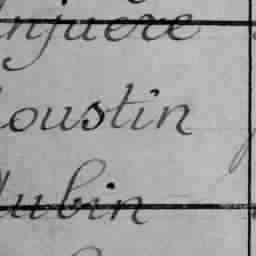 njuere
oustin
ubin